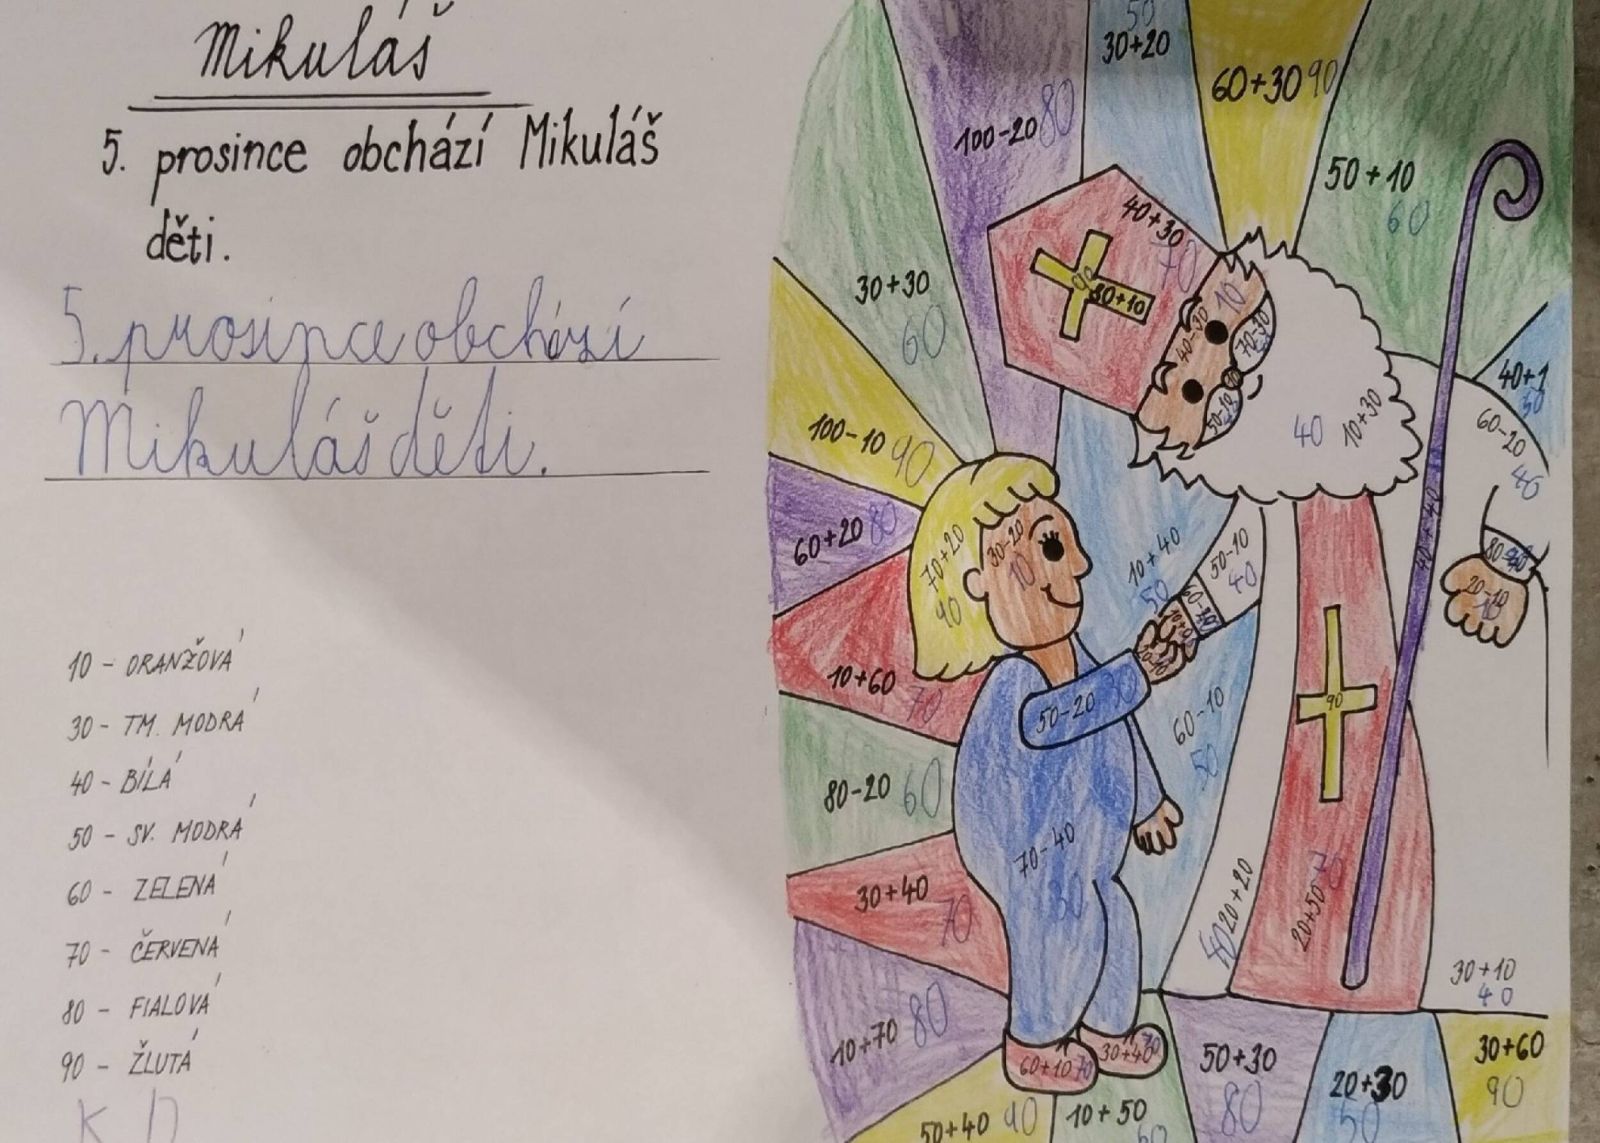 Mikuláš
5. prosince obchází Mikuláš
děti.
5. prosince obchází
Mikuláš děti.
10 - ORANŽOVÁ
30 - TM. MODRÁ
40 - BÍLÁ
50 - SV. MODRÁ
60 - ZELENÁ
70 - ČERVENÁ
80 - FIALOVÁ
90 - ŽLUTÁ
K D
50
30+20
60+30 90
100-20 80
50+10
60
40+30
70
30+30
60
90
80+10
10
40-30
70-30
50-10
40 10+30
40+1
50
60-20
40
100-10 90
60+20 80
70+20
90
30-20
10
10+40
50
50-10
40
40+40
20-10
10
10+60
70
50-20 30
60-10
50
90
80-20 60
70-40
30
30+40
70
20+20
40
20+50 70
30+10
40
10+70 80
60+10 70
30+40
50+30
80
20+30
50
30+60
90
50+40 90
10+50
60